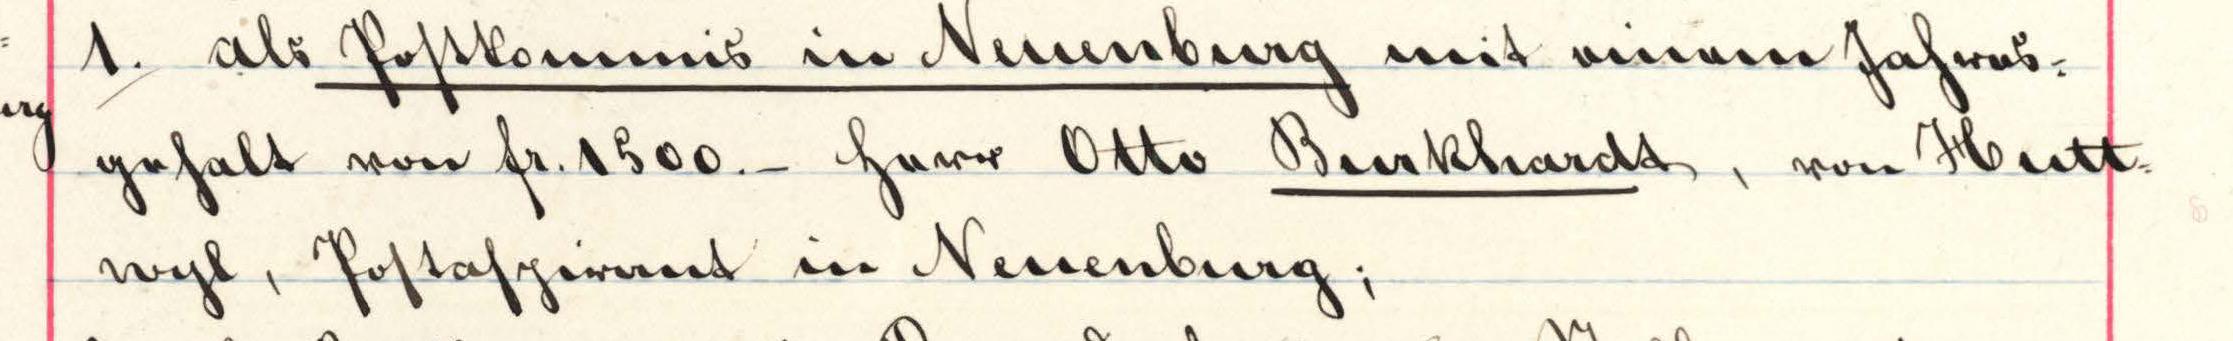 1. als Postkommis in Neuenburg mit einem Jahres=
gehalt von fr. 1500.- Herr Otto Burkhardt, von Hutt=
wyl, Postaspirant in Neuenburg;